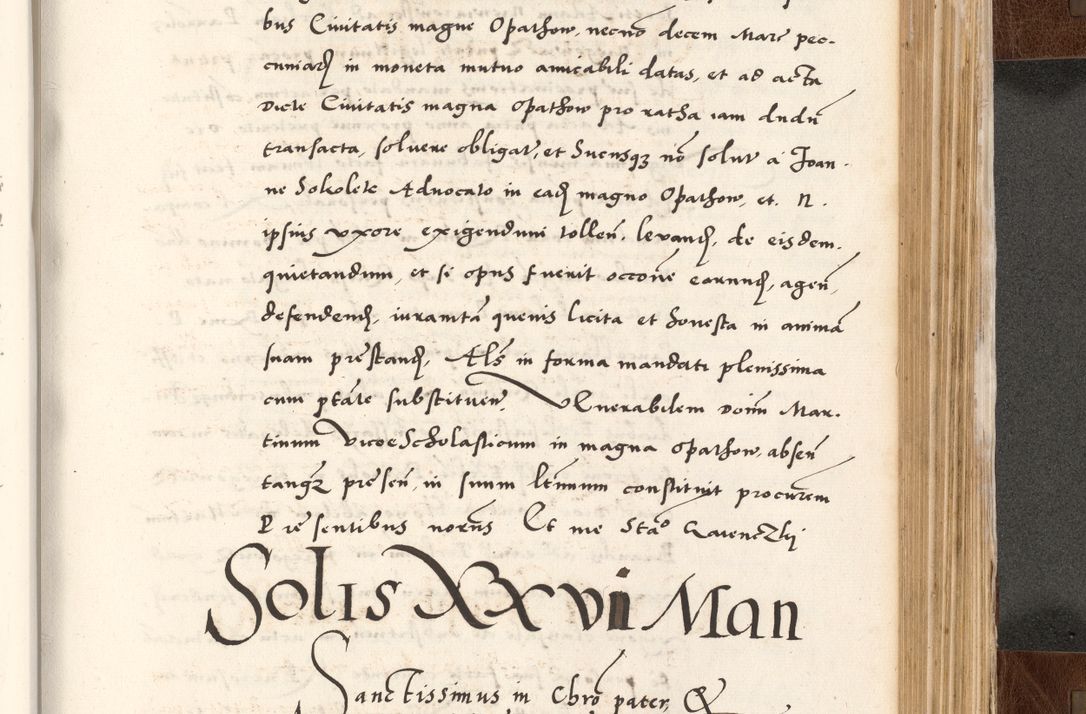 bus Civitatis magne Opathow, necnō decem Marc pec-
cuniarʒ in moneta mutuo amicabili datas, et ad acta
Dicte Civitatis magna Opathow pro ratha iam dudū
transacta, solvere obligat, et huensqʒ nō solut a Joan-
ne Sokolete Advocato in eadʒ magno Opathow, et N.
ipsius uxore exigendum tollen. levandʒ, de eisdem.
quietandum, et si opus fuerit occōne earundʒ, agen̄
defendendʒ, iuramtā quevis licita et honesta in animā
suam prestandʒ, Als in forma mandati plenissima
cum ptāte substituen. Venerabilem Doīm Mar-
tinum Vice Scholasticum in magna Opathow, absen̄
tanqʒ presen̄, in suum ltīmum constituit procurēm
Presentibus norūs Et me Stāo
Solis XXVII Man
Sanctissimus in Chrō pater, &